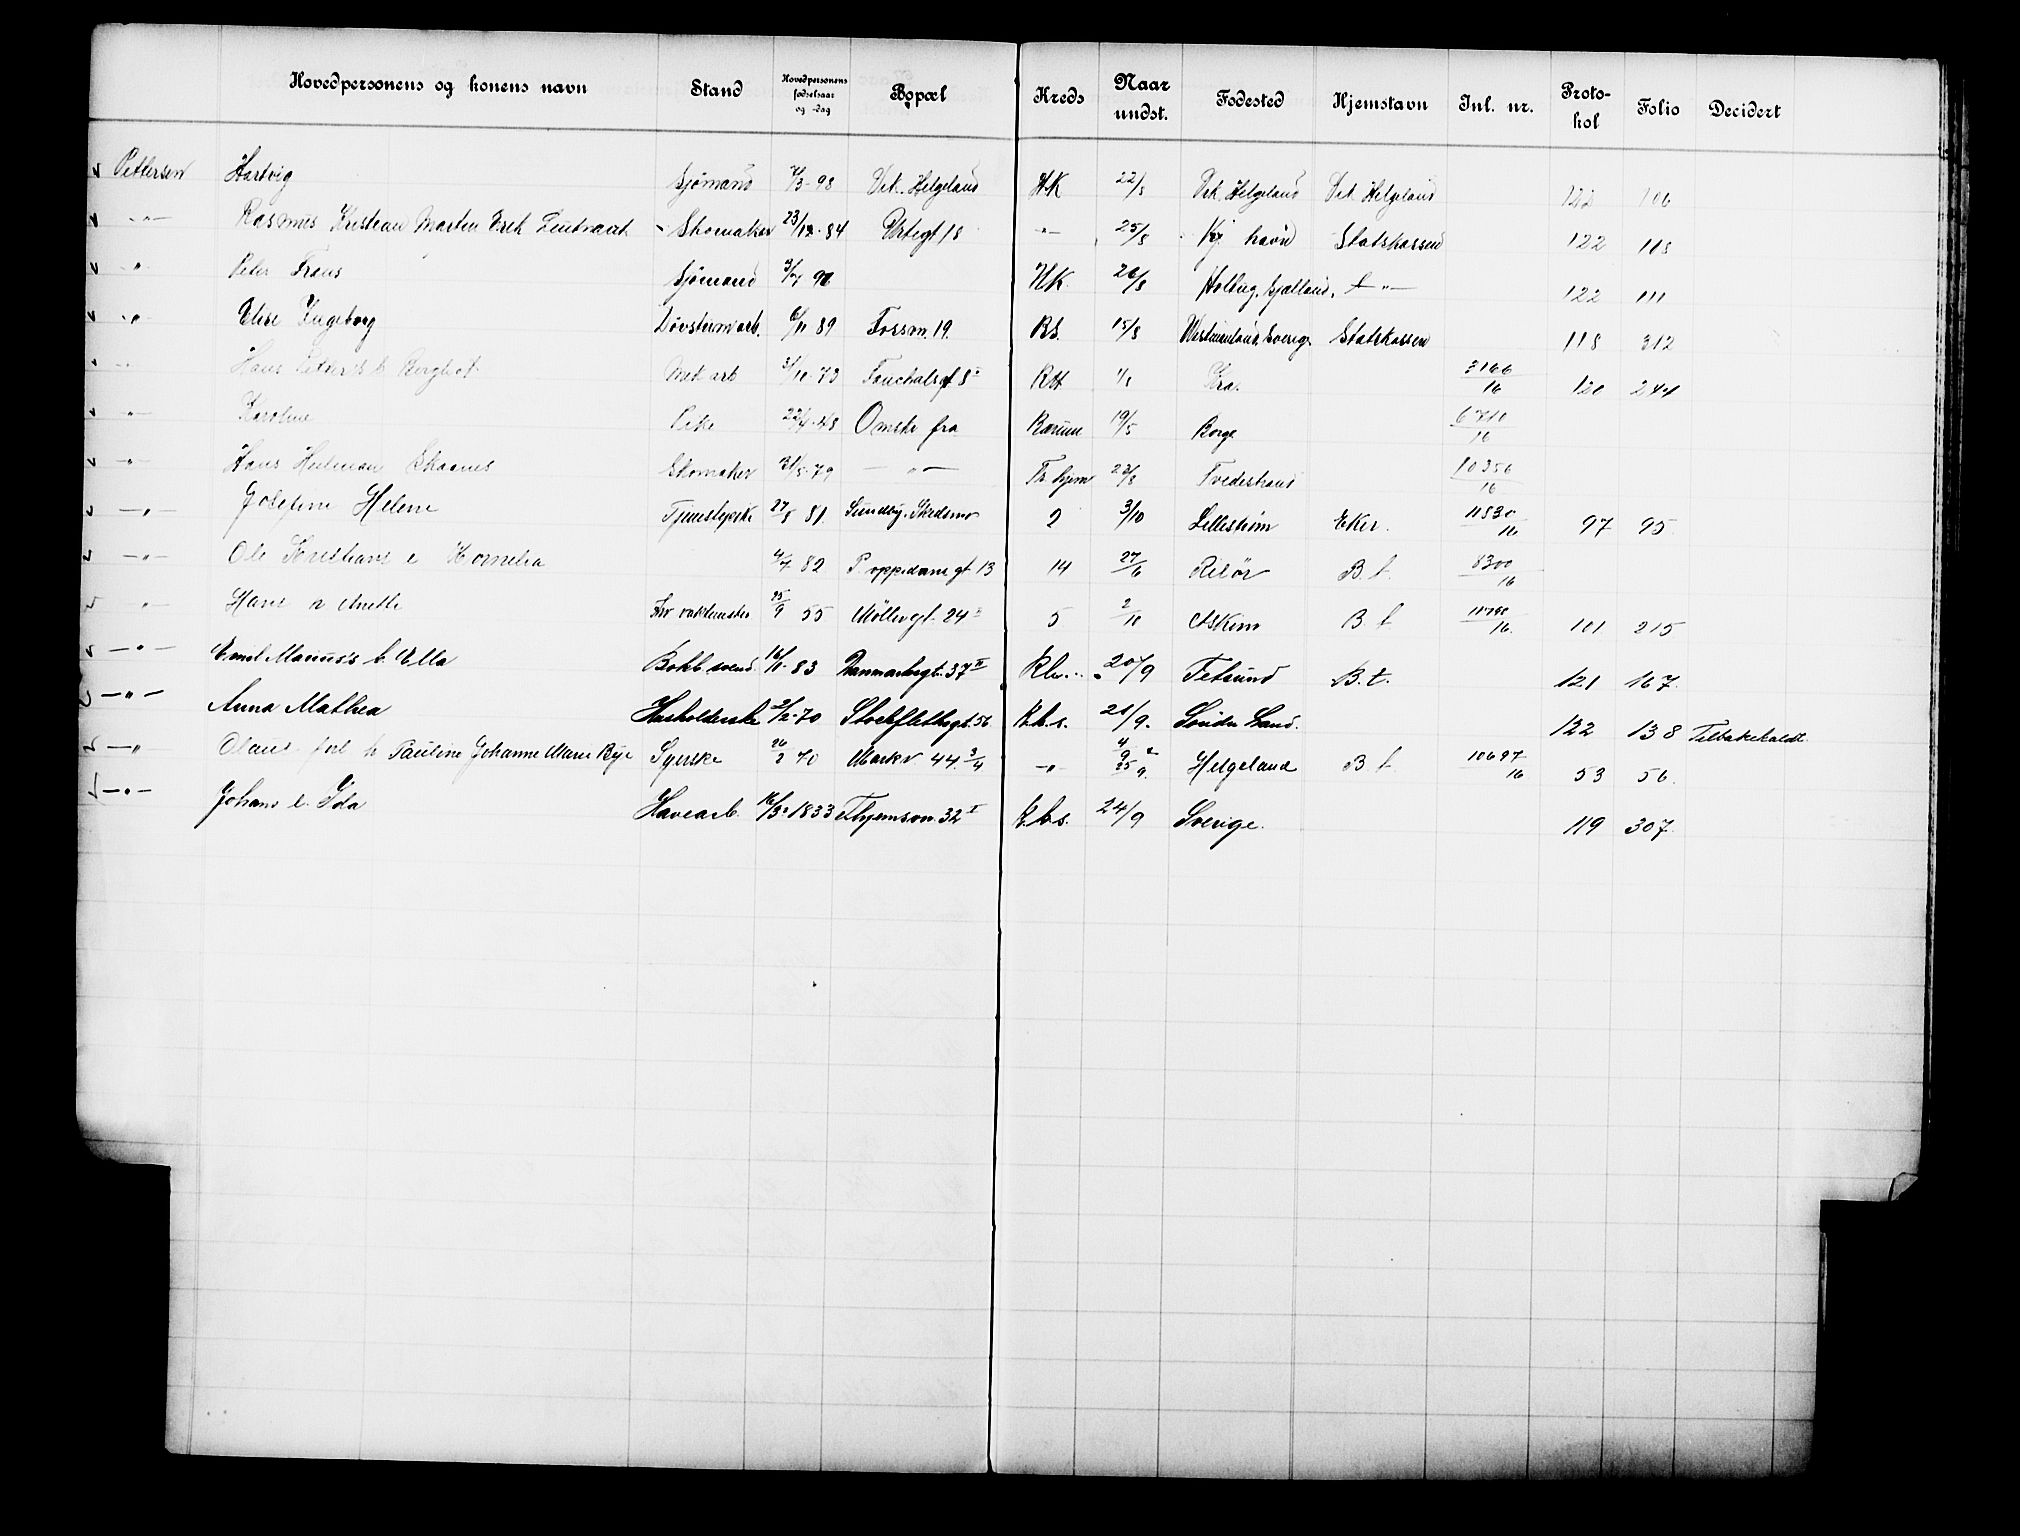 Hovedpersonens og konens navn Stand Hovedpersonens fødselsaar og -dag Bopæl Kreds Naar undst. Fødested Hjemstavn Inl. nr. Protokol Folio Decidert
Pettersen Hartvig Sjømand 98 Vik. Helgeland HK 22/8 Vik. Helgeland Vik Helgeland 122 106
-"- Rasmus Kristian Martin Skomaker 23/12-84 Urtegt 18 -"- 25/8 Kj havn Statskassen 122 118
" Peter Frans Sjømand HK. 26/8 Holbæg, Sjælland. -"- 122 111
" Elise Ingeborg Løvstuvarb. 6/11 89 Fossvn. 19. BS. 15/8 Sverige Statskassen 118 312
" Hans b. Berghof Met arb 3/10-73 Fauchalsgt 8 1/8 Kra. 3166/16 120 244
-"- Karoline Pike 22/4-48 Omstr fra Bærum 19/5 Borge 6710/16
-"- Hans Herlman Skaanes Skomaker 31/5-79 -"- Tr. hjem 23/8 Tvedestrand 10356/16
-"- Josefine Helene Tjenestepike 27/8 81. Sundby. Skedsmo 2 3/10 Lillestrøm Eker. 11530/16 97 95
-"- Ole Kristians e Kornelia 4/7 82 P. oppedams gt 13 14 27/6 Risør B. t. 8300/16
" Hans e Anette Inv vaktmester 25/9 55 Møllergt. 24 5 2/10 Askim B t. 101 215
-"- Emil Marius's b. Ella Bokb. svend 16/11-83 Danmarksgt. 37 II Kh. 20/9 Fetsund B. t. 121 167.
-"- Anna Mathea Husholderske 2/2-70 Stockflethsgt. 56 K.h.s. 21/9. Søndre Land. 122 138 Tilbakekaldt
-"- Olaus Pauline Johanne Marie Bye Syerske 26/2 70 Markv 44. 3/4 -"- 4/9 25/9. Helgeland B t. 10697/16 53 56.
-"- Johans e. Ida Havearb. 1833 Thjemsvn. 32 I K.h.s. 24/9 Sverige. 119 307.